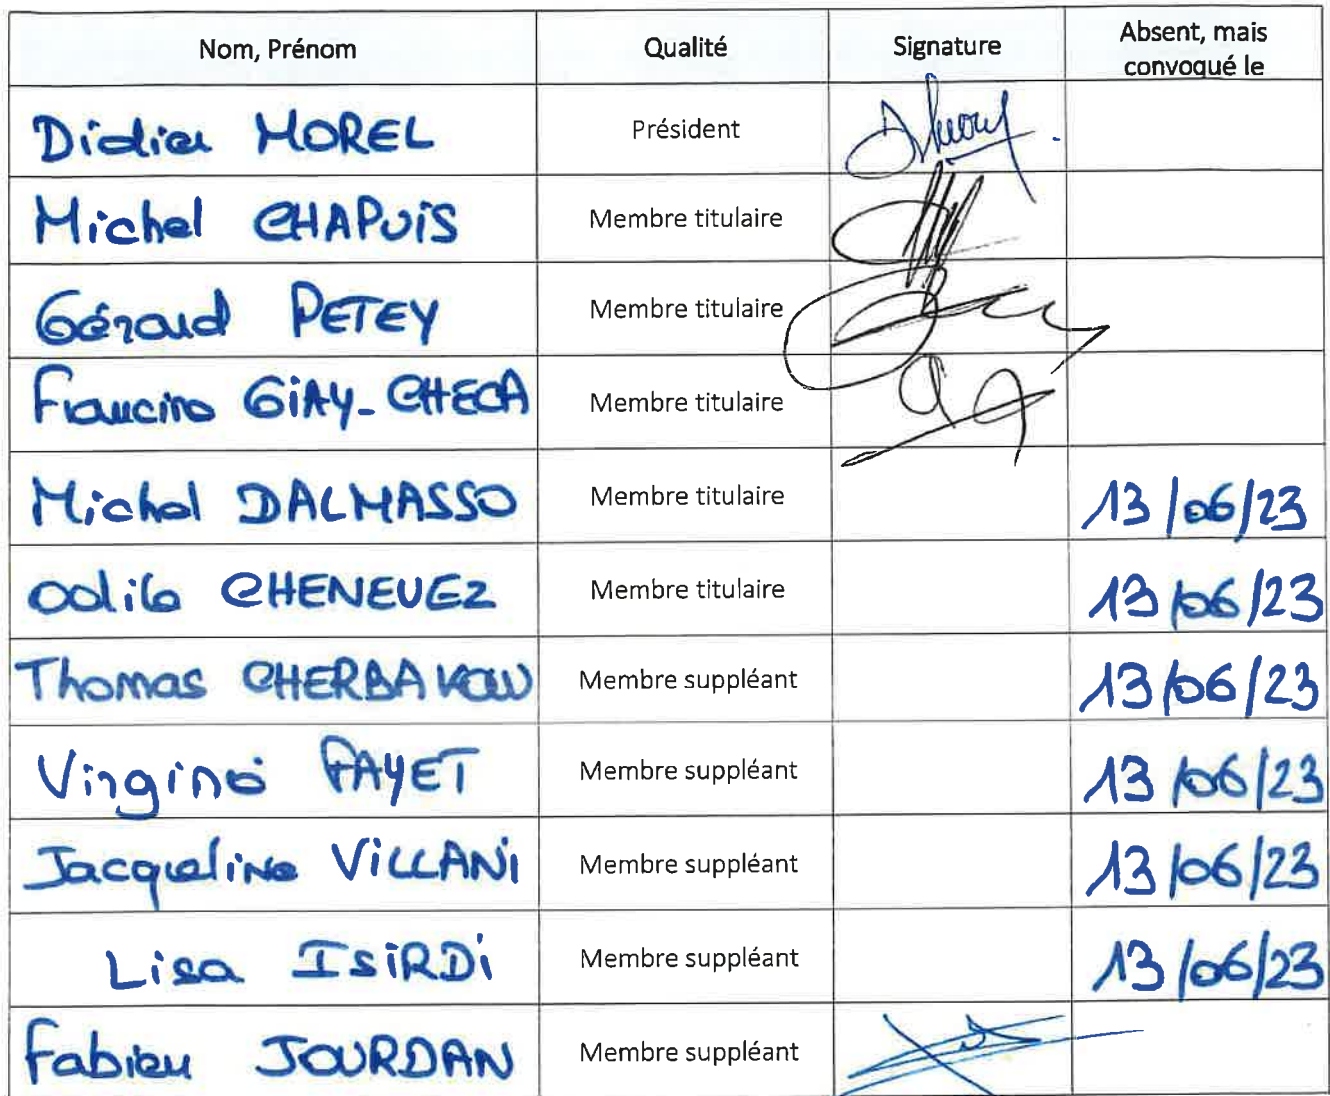 Nom, Prénom Qualité Signature Absent, mais convoqué le
Didier MOREL Président
Michel CHAPUIS Membre titulaire
Gérard PETEY Membre titulaire
Francine GIAY-CHECA Membre titulaire
Michel DALMASSO Membre titulaire 13/06/23
Odile CHENEVEZ Membre titulaire 13/06/23
Thomas CHERBAKOW Membre suppléant 13/06/23
Virginie FAYET Membre suppléant 13/06/23
Jacqueline VILLANI Membre suppléant 13/06/23
Lisa ISIRDI Membre suppléant 13/06/23
Fabien JOURDAN Membre suppléant